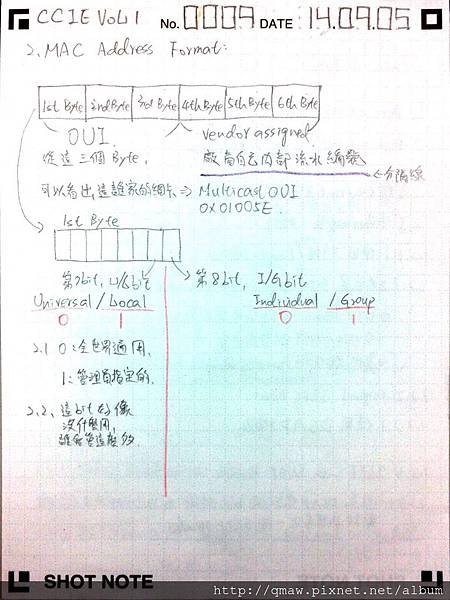 CCIE Vol.1 No. 0009 DATE 14.09.05
2. MAC Address Format:
1st Byte 2nd Byte 3rd Byte 4th Byte 5th Byte 6th Byte
OUI. vendor assigned.
從這三個Byte, 廠商自己內部流水編號
←分隔線
可以看出這誰家的網卡 => Multicast OUI
0x01005E.
1st Byte
第7bit, U/Gbit 第8bit, I/Gbit
Universal / Local Individual / Group
0 1 0 1
2.1 0:全世界通用,
1:管理員指定的.
2.2, 這bit好像
沒什麼用,
誰會管這麼多.
SHOT NOTE
http://qmaw.pixnet.net/album